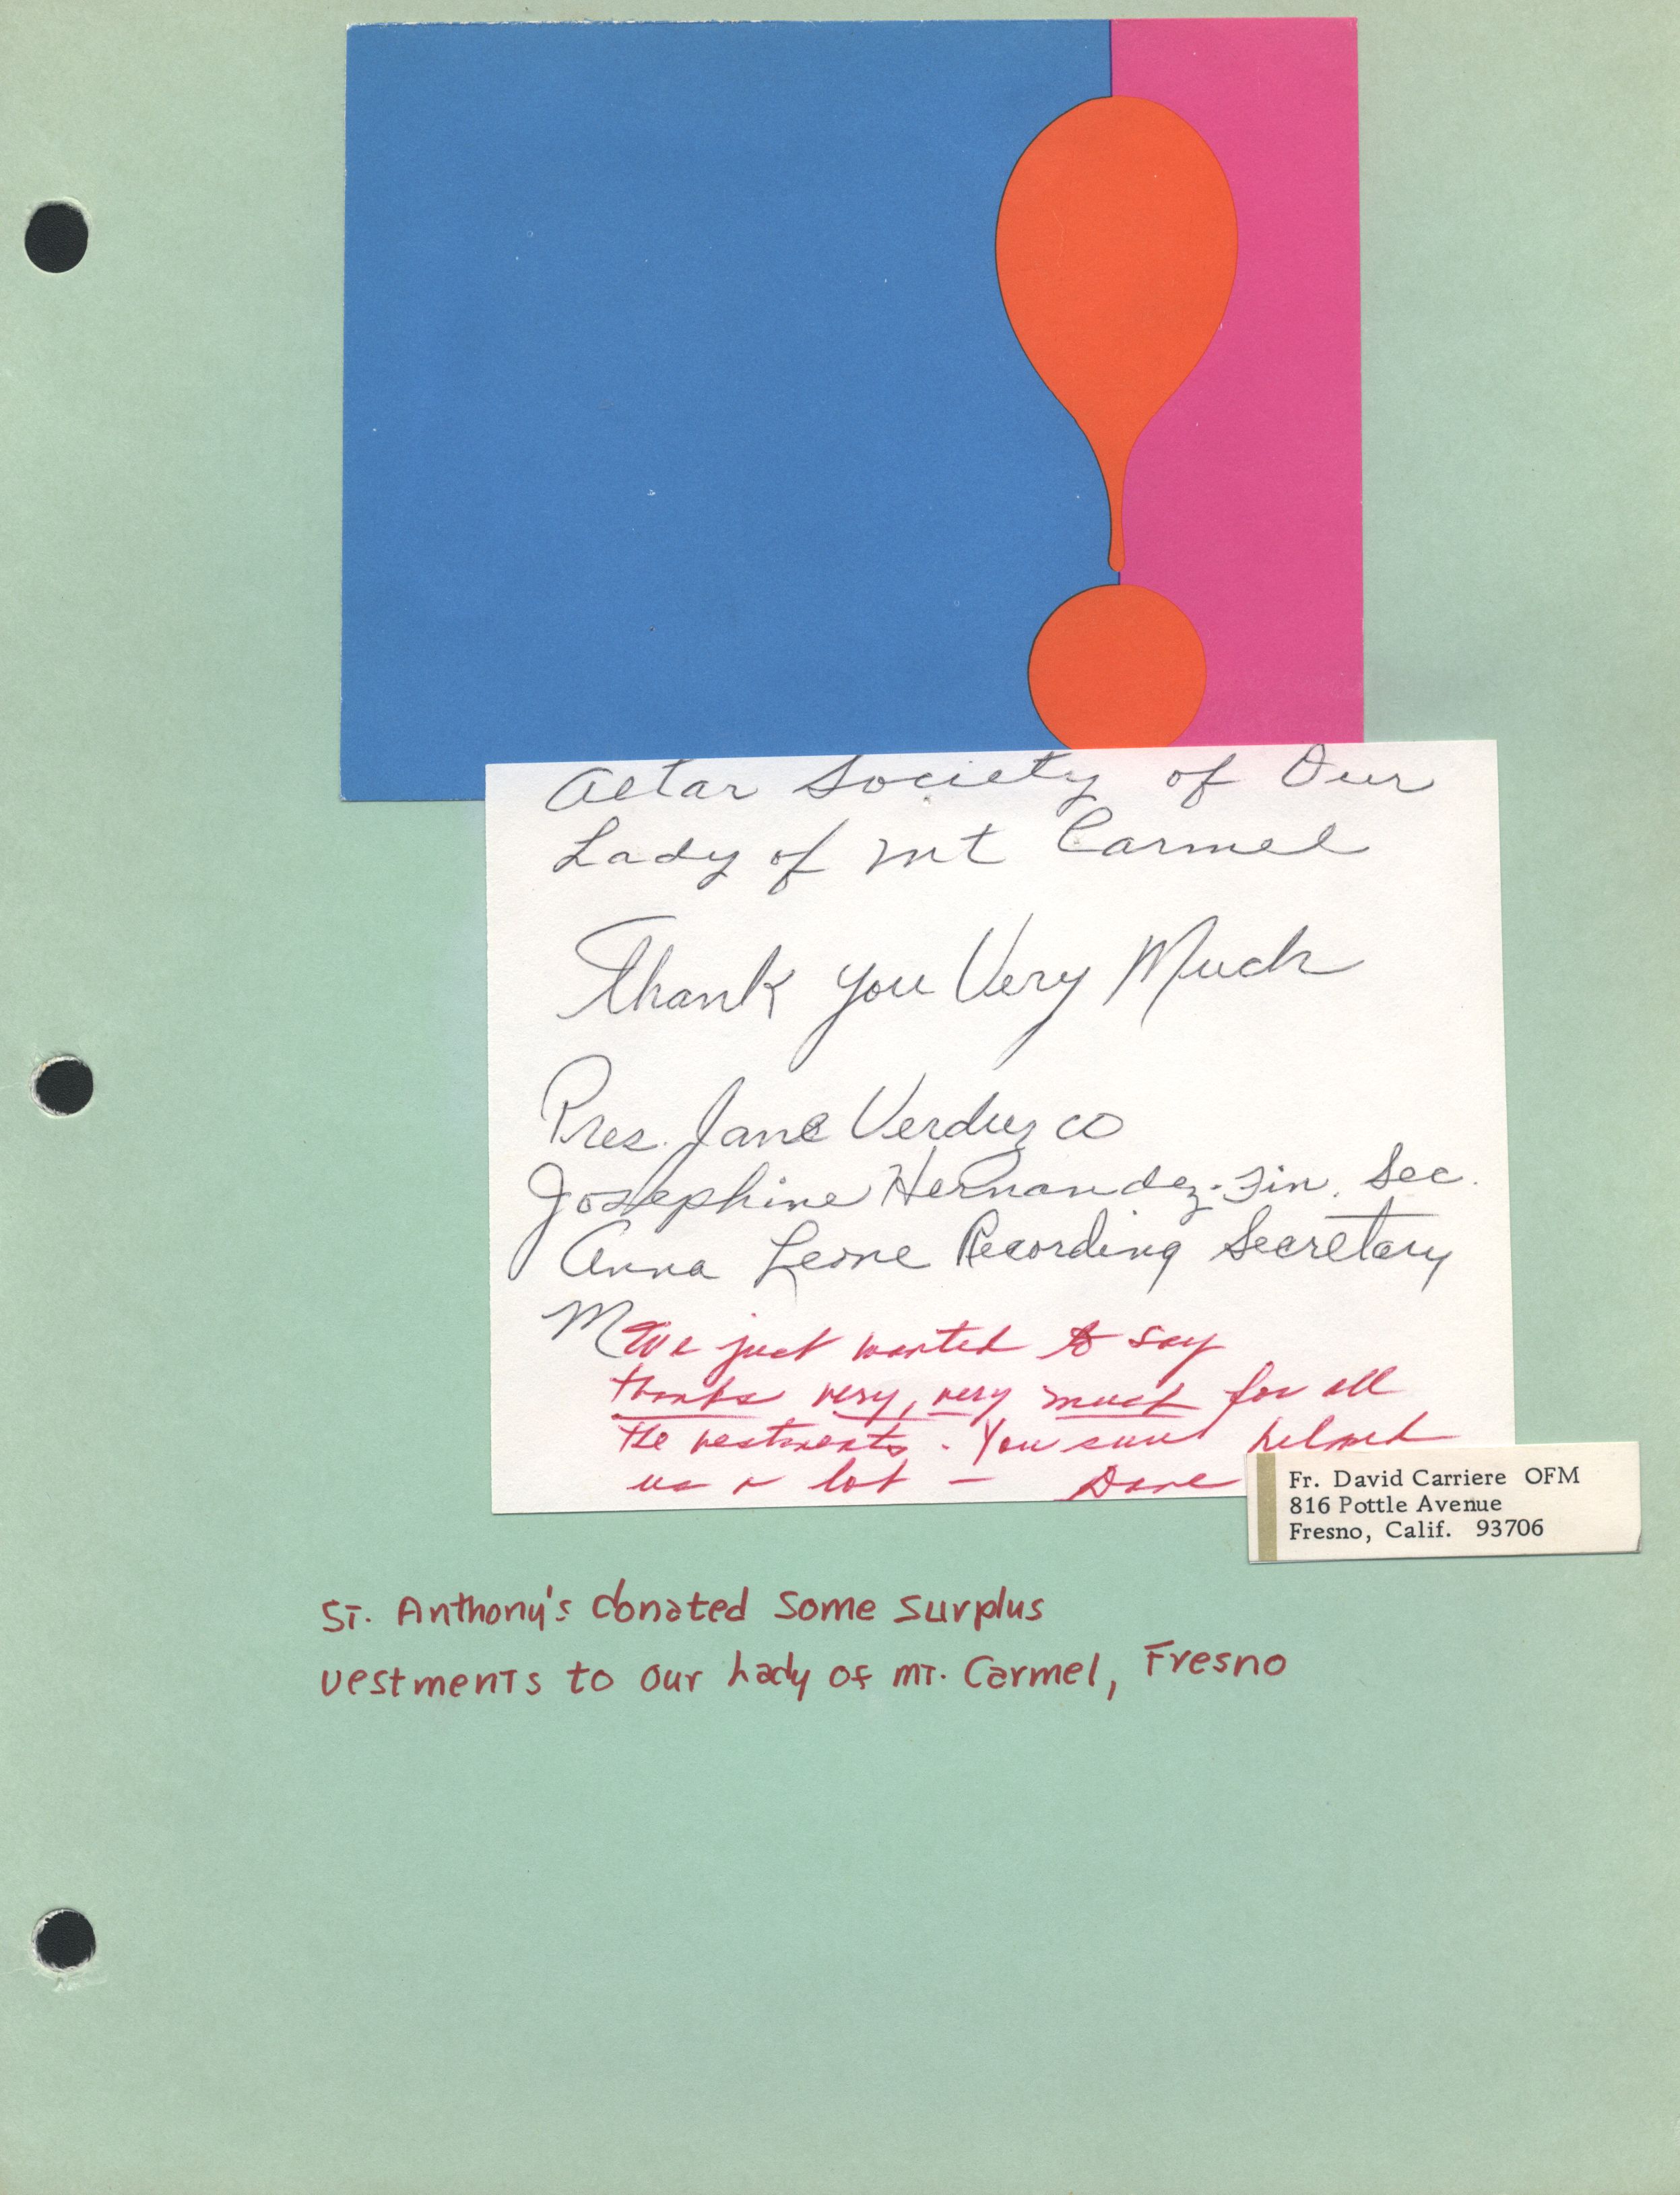 Altar Society of Our
Lady of Mt Carmel
Thank you Very Much
Pres. Jane Verduzco
Josephine Hernandez - Fin. Sec.
Anna Leone Recording Secretary
M
We just wanted to say
thanks very, very much for all
the vestments. You sure helped
us a lot — Dave
Fr. David Carriere OFM
816 Pottle Avenue
Fresno, Calif. 93706
St. Anthony's donated some surplus
vestments to Our Lady of Mt. Carmel, Fresno